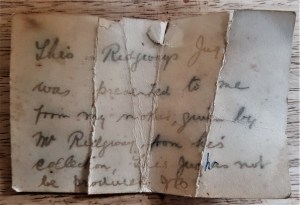 This Ridgways Jug
was presented to me
from my given by
Mr Ridgway from his
collection, This Jug has not
be produced